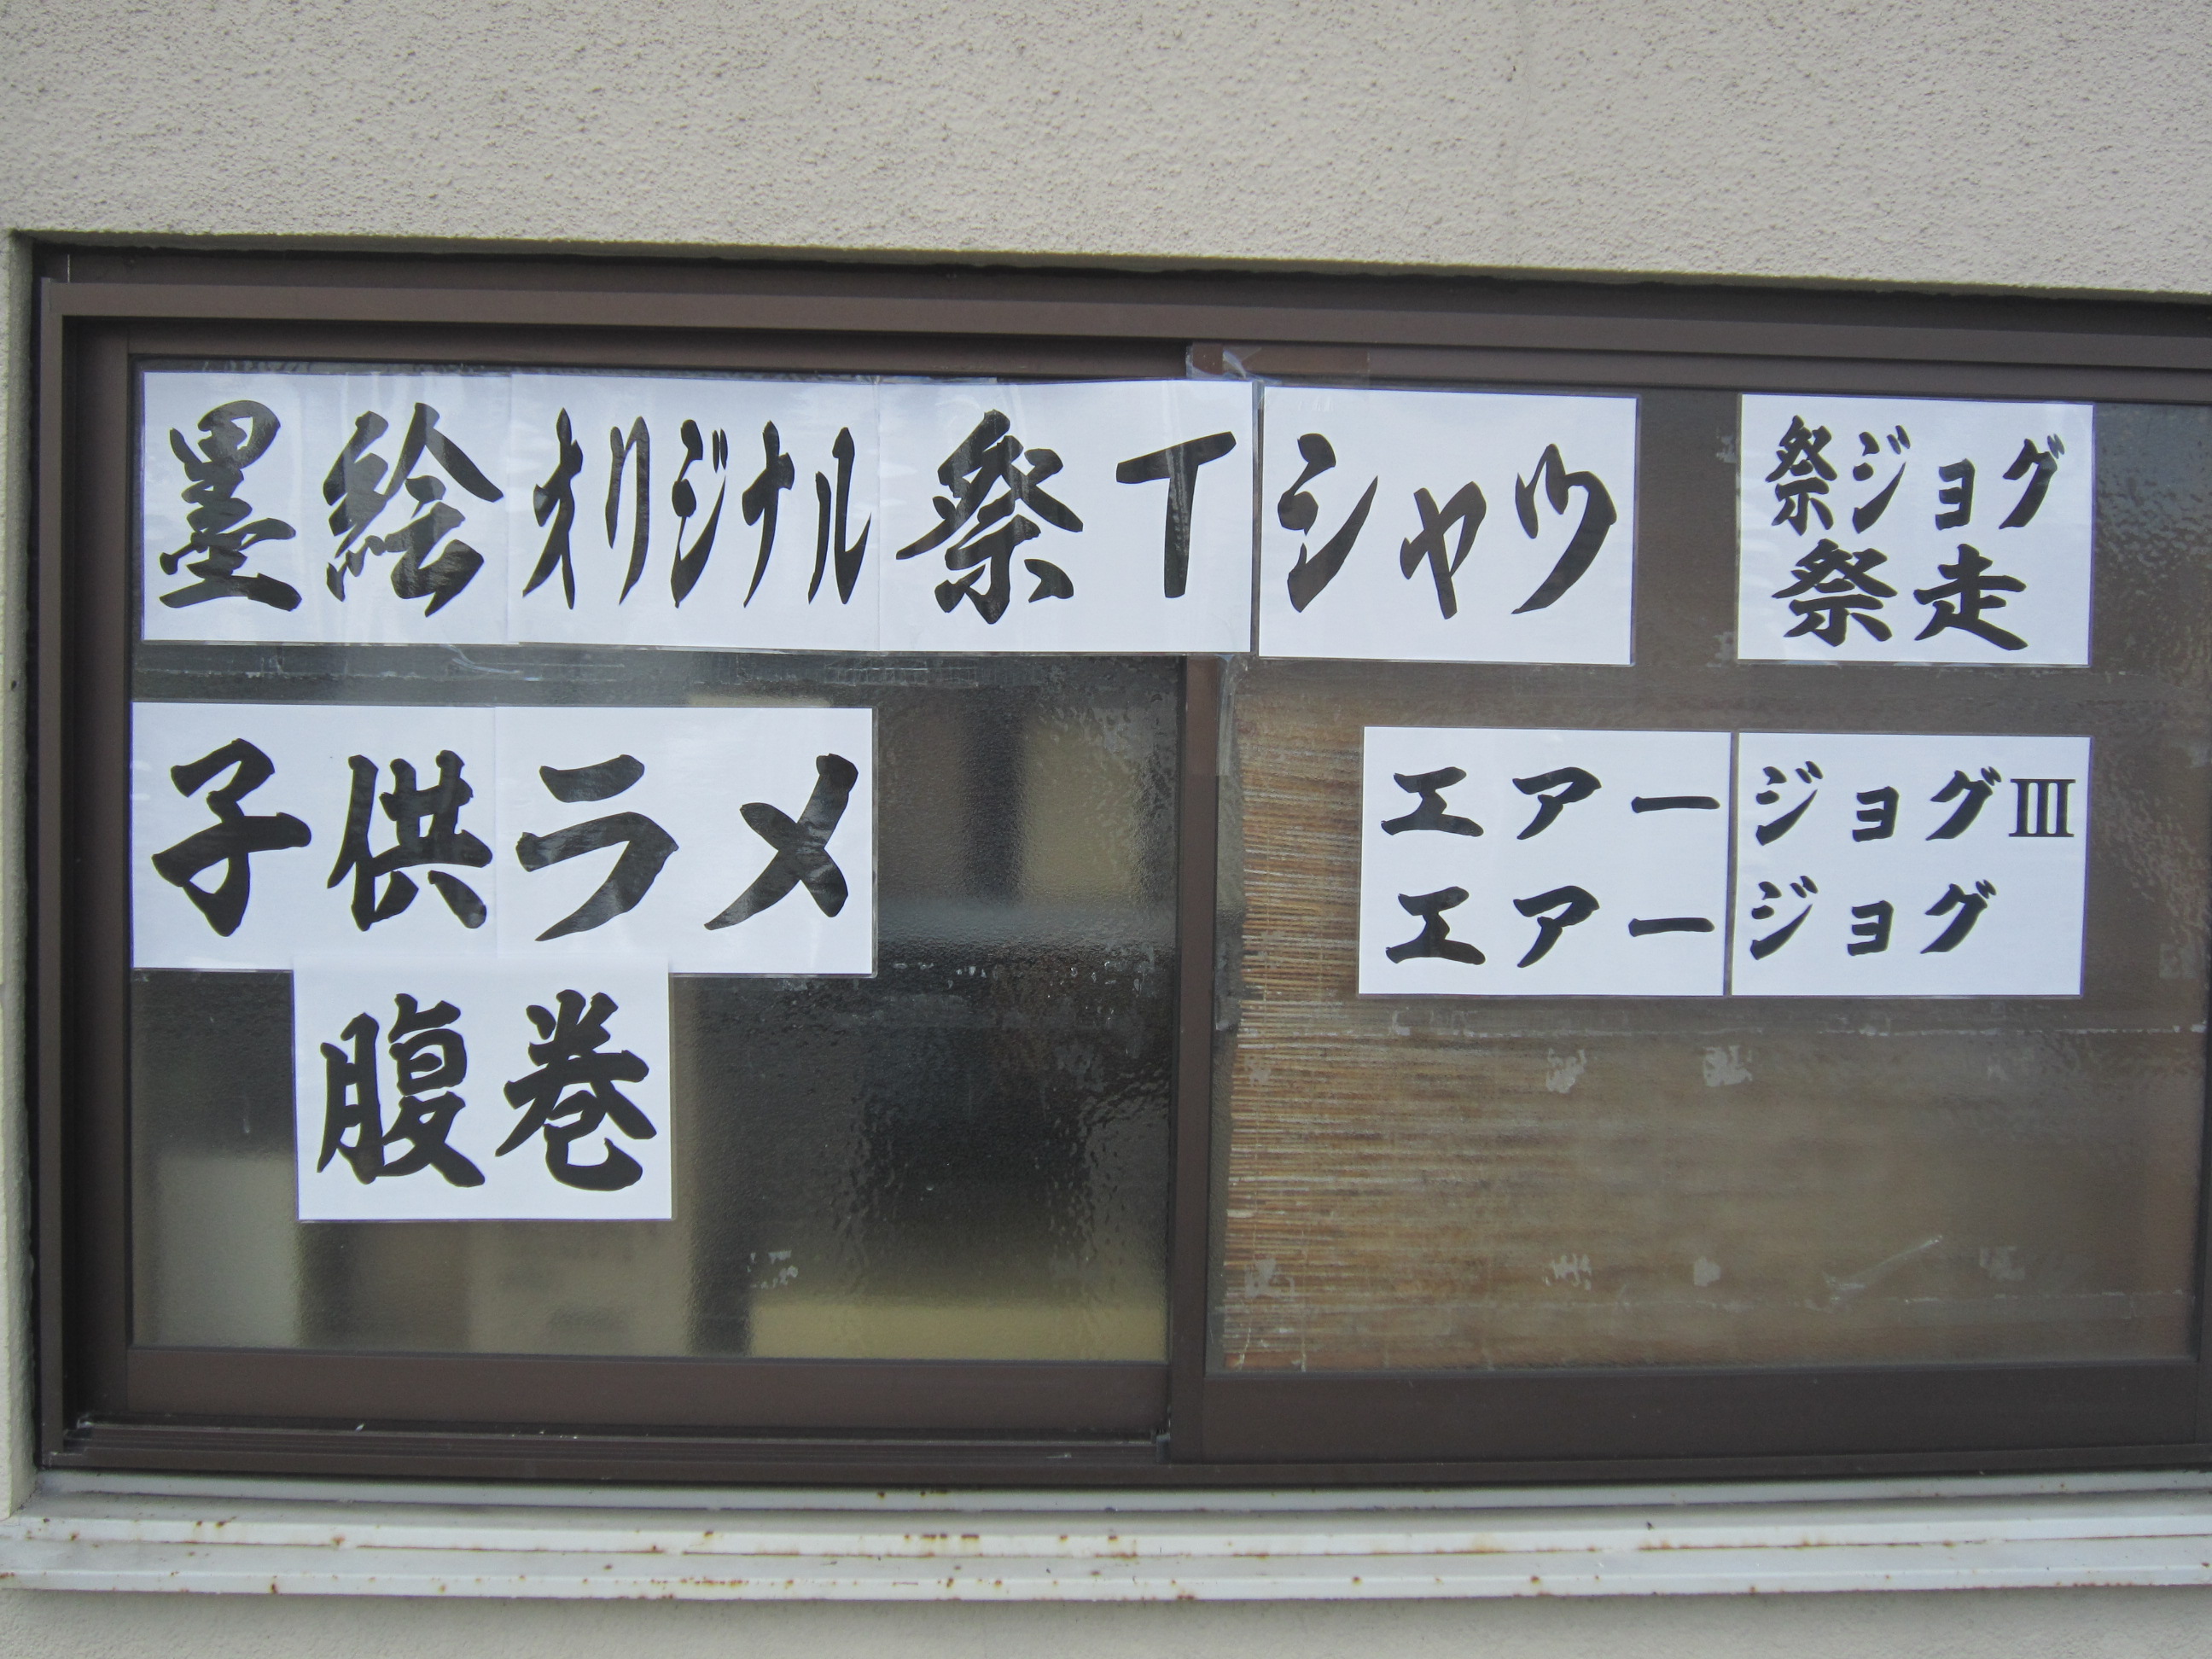 墨絵オリジナル祭Tシャツ
祭ジョグ
祭走
子供ラメ
腹巻
エアージョグⅢ
エアージョグ